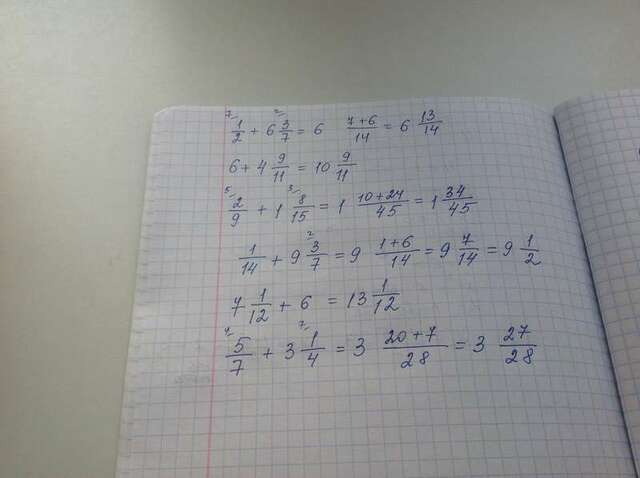 7/ 1/2 + 6 2/ 3/7 = 6 7+6/14 = 6 13/14
6 + 4 9/11 = 10 9/11
5/ 2/9 + 1 3/ 8/15 = 1 10+24/45 = 1 34/45
1/14 + 9 2/ 3/7 = 9 1+6/14 = 9 7/14 = 9 1/2
7 1/12 + 6 = 13 1/12
4/ 5/7 + 3 7/ 1/4 = 3 20+7/28 = 3 27/28